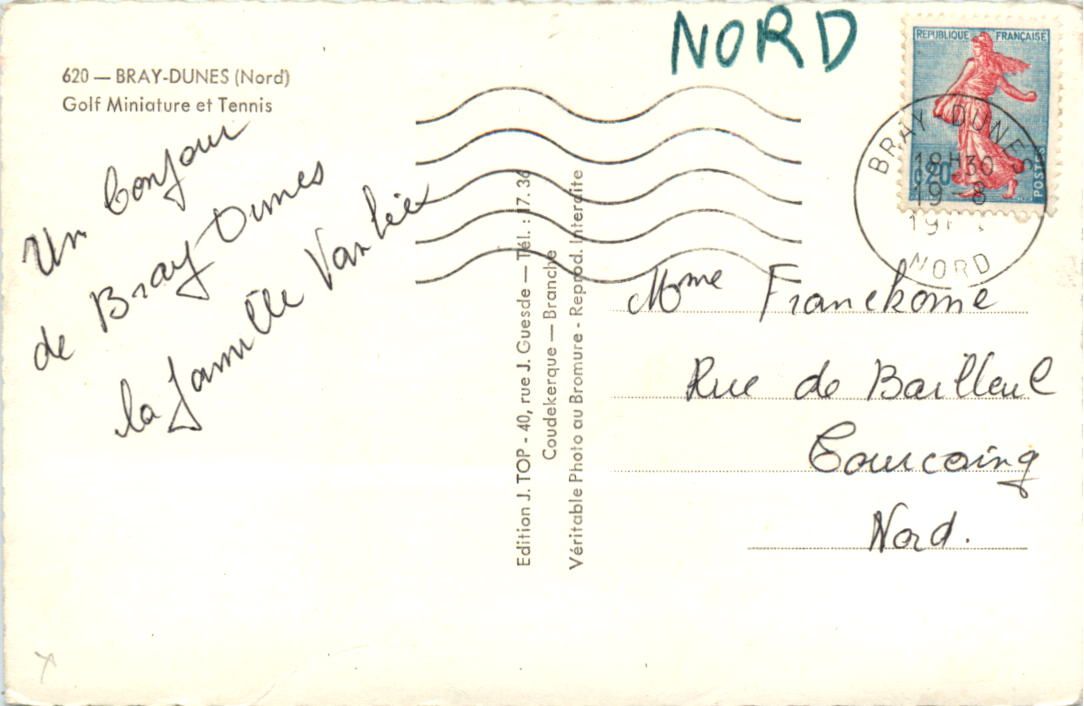 NORD
620 — BRAY-DUNES (Nord)
Golf Miniature et Tennis
Un bonjour
de Bray Dunes
la famille
REPUBLIQUE FRANÇAISE
0,20
POSTES
BRAY-DUNES
18H30
19-8
NORD
Edition J. TOP - 40, rue J. Guesde — Tél. : 17.36
Coudekerque — Branche
Véritable Photo au Bromure - Reprod. Interdite
Mme Franckome
Rue de Bailleul
Tourcoing
Nord.